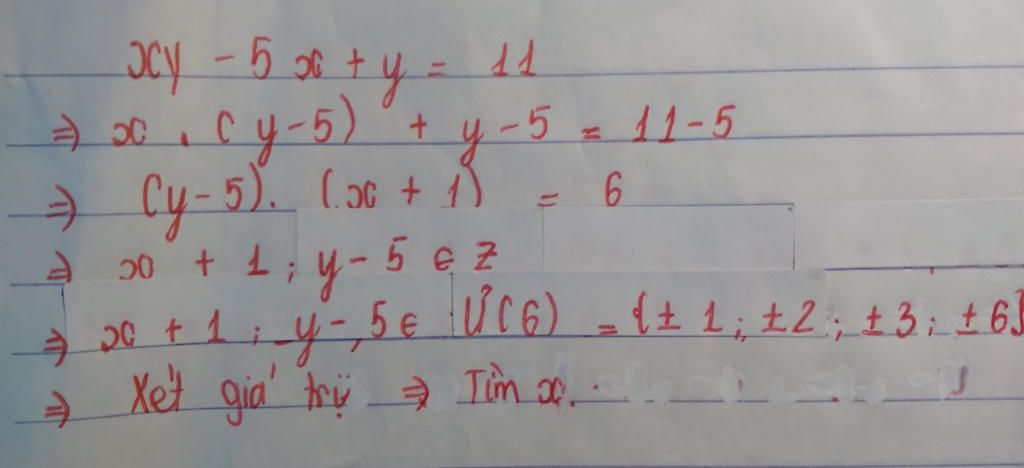 xy - 5x + y = 11
⇒ x . (y-5) + y-5 = 11-5
⇒ (y-5). (x + 1) = 6
⇒ x + 1 ; y - 5 ∈ Z
⇒ x + 1 ; y - 5 ∈ Ư(6) = {± 1 ; ±2 ; ±3 ; ±6}
⇒ Xét giá trị ⇒ Tìm x.